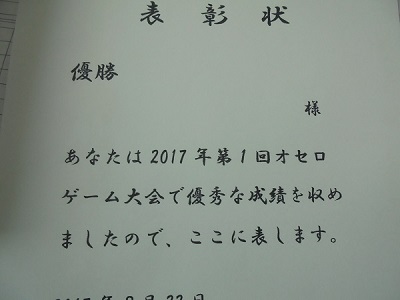 表彰状
優勝
様
あなたは2017年第1回オセロ
ゲーム大会で優秀な成績を収め
ましたので、ここに表します。